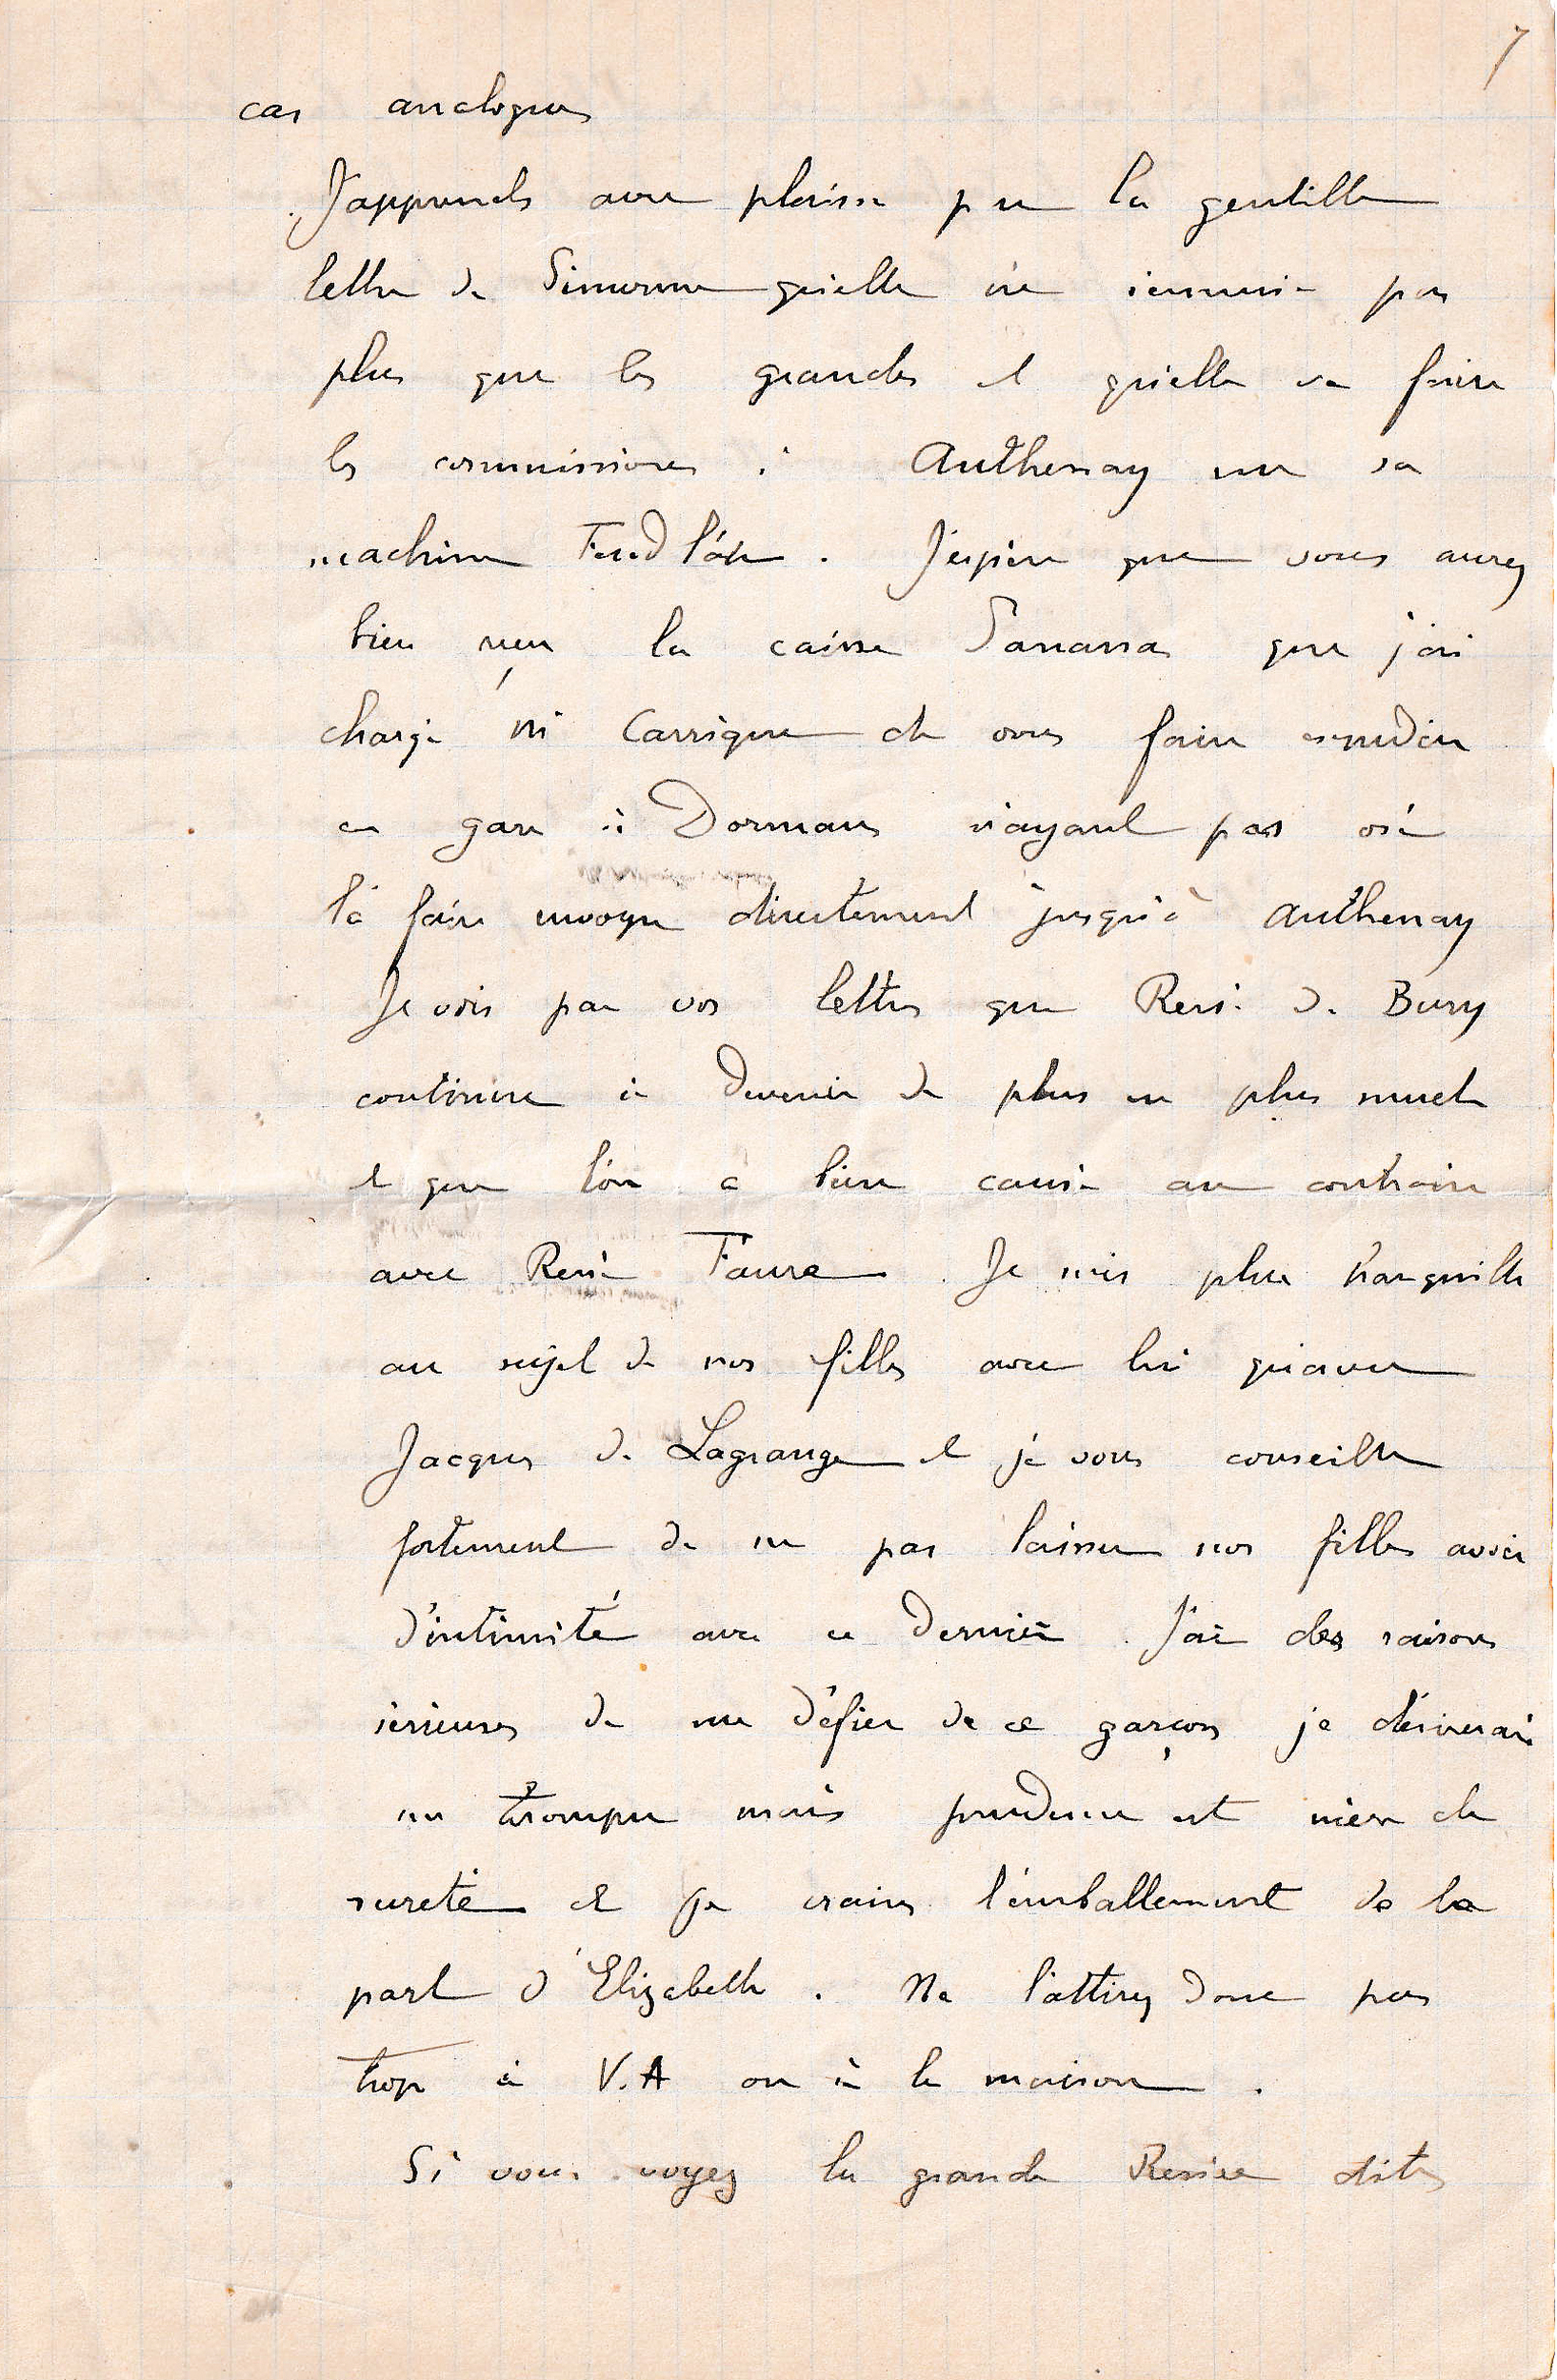 7
cas analogues
J'apprends avec plaisir par la gentille
lettre de Simonne qu'elle ne s'ennuie pas
plus que les grandes et qu'elle va faire
les commissions à Anthenay sur sa
machine Fend l'air. J'espère que vous aurez
bien reçu la caisse que j'ai
chargé Mr Carrigue de vous faire expédier
en gare à Dormans n'ayant pas osé
la faire envoyer directement jusqu'à Anthenay
Je vois par vos lettres que René de Bury
continue à devenir de plus en plus muet
et que l'on a bien causé au contraire
avec René Faure. Je suis plus tranquille
au sujet de nos filles avec lui qu'avec
Jacques de Lagrange et je vous conseille
fortement de ne pas laisser nos filles avoir
d'intimité avec ce dernier. J'ai des raisons
sérieuses de me défier de ce garçon je désirerais
me tromper mais prudence est mère de
sureté et je crains l'emballement de la
part d'Elizabeth. Ne l'attirez donc pas
trop à V.A ou à la maison.
Si vous voyez la grande Renée dites